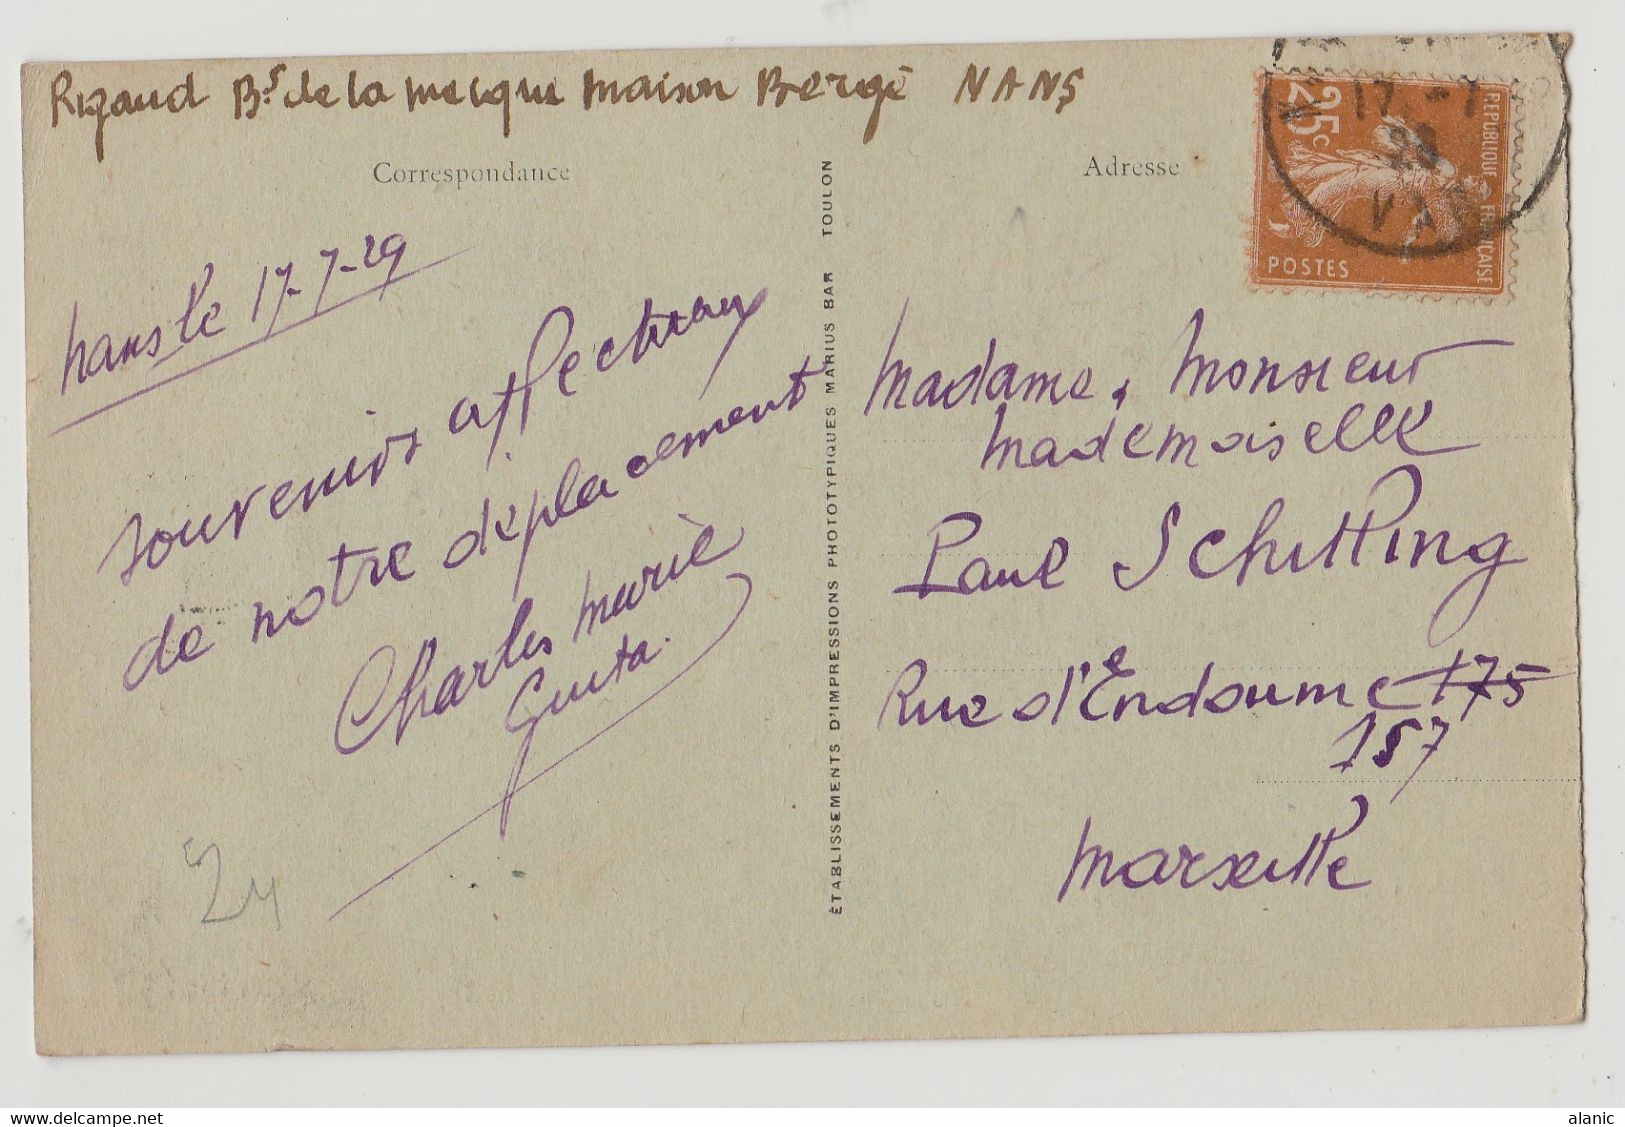 Rigaud Bd de la meique maison Bergé NANS
Correspondance
Adresse
25c
REPUBLIQUE FRANÇAISE
POSTES
17 -7
29
VAR
nans le 17-7-29
souvenirs affectueux
de notre déplacement
Charles Marie
ÉTABLISSEMENTS D'IMPRESSIONS PHOTOTYPIQUES MARIUS BAR TOULON
Madame, Monsieur
Mademoiselle
Paul Schilling
Rue d'Endoume 175
157
Marseille
delcampe.net
alanic